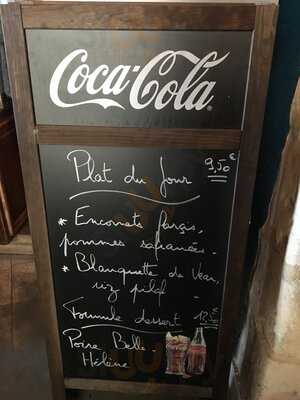 Coca-Cola
Plat du Jour 9,50€
* Encornets farçis,
pommes safranées.
* Blanquette de Veau,
riz pilaf.
Formule dessert 12€
Poire Belle
Hélène